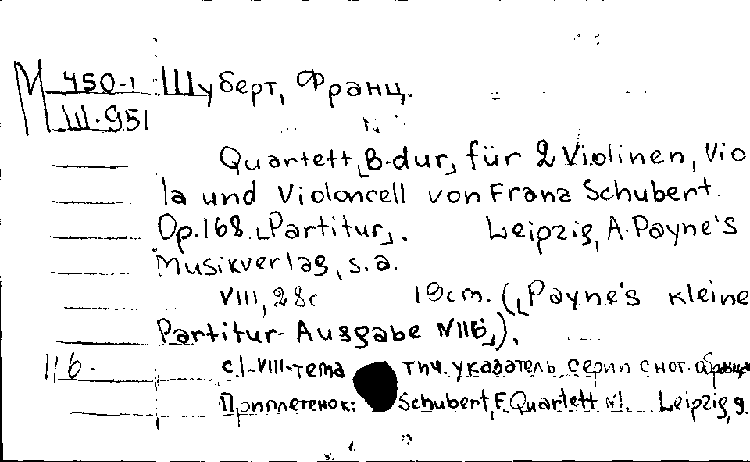 М 450-1 Шуберт, Франц.
Ш-951
Quartett, B-dur, für 2 Violinen, Vio
la und Violoncell von Franz Schubert.
Op.168. [Partitur]. Leipzig, A. Payne's
Musikverlag, s.a.
VIII, 28с 19cm. ([Payne's kleine
Partitur-Ausgabe N116]).
116. с I-VIII-тема тич. указатель серии с нот.
Приплетенок: Schubert, F. Quartett Leipzig,